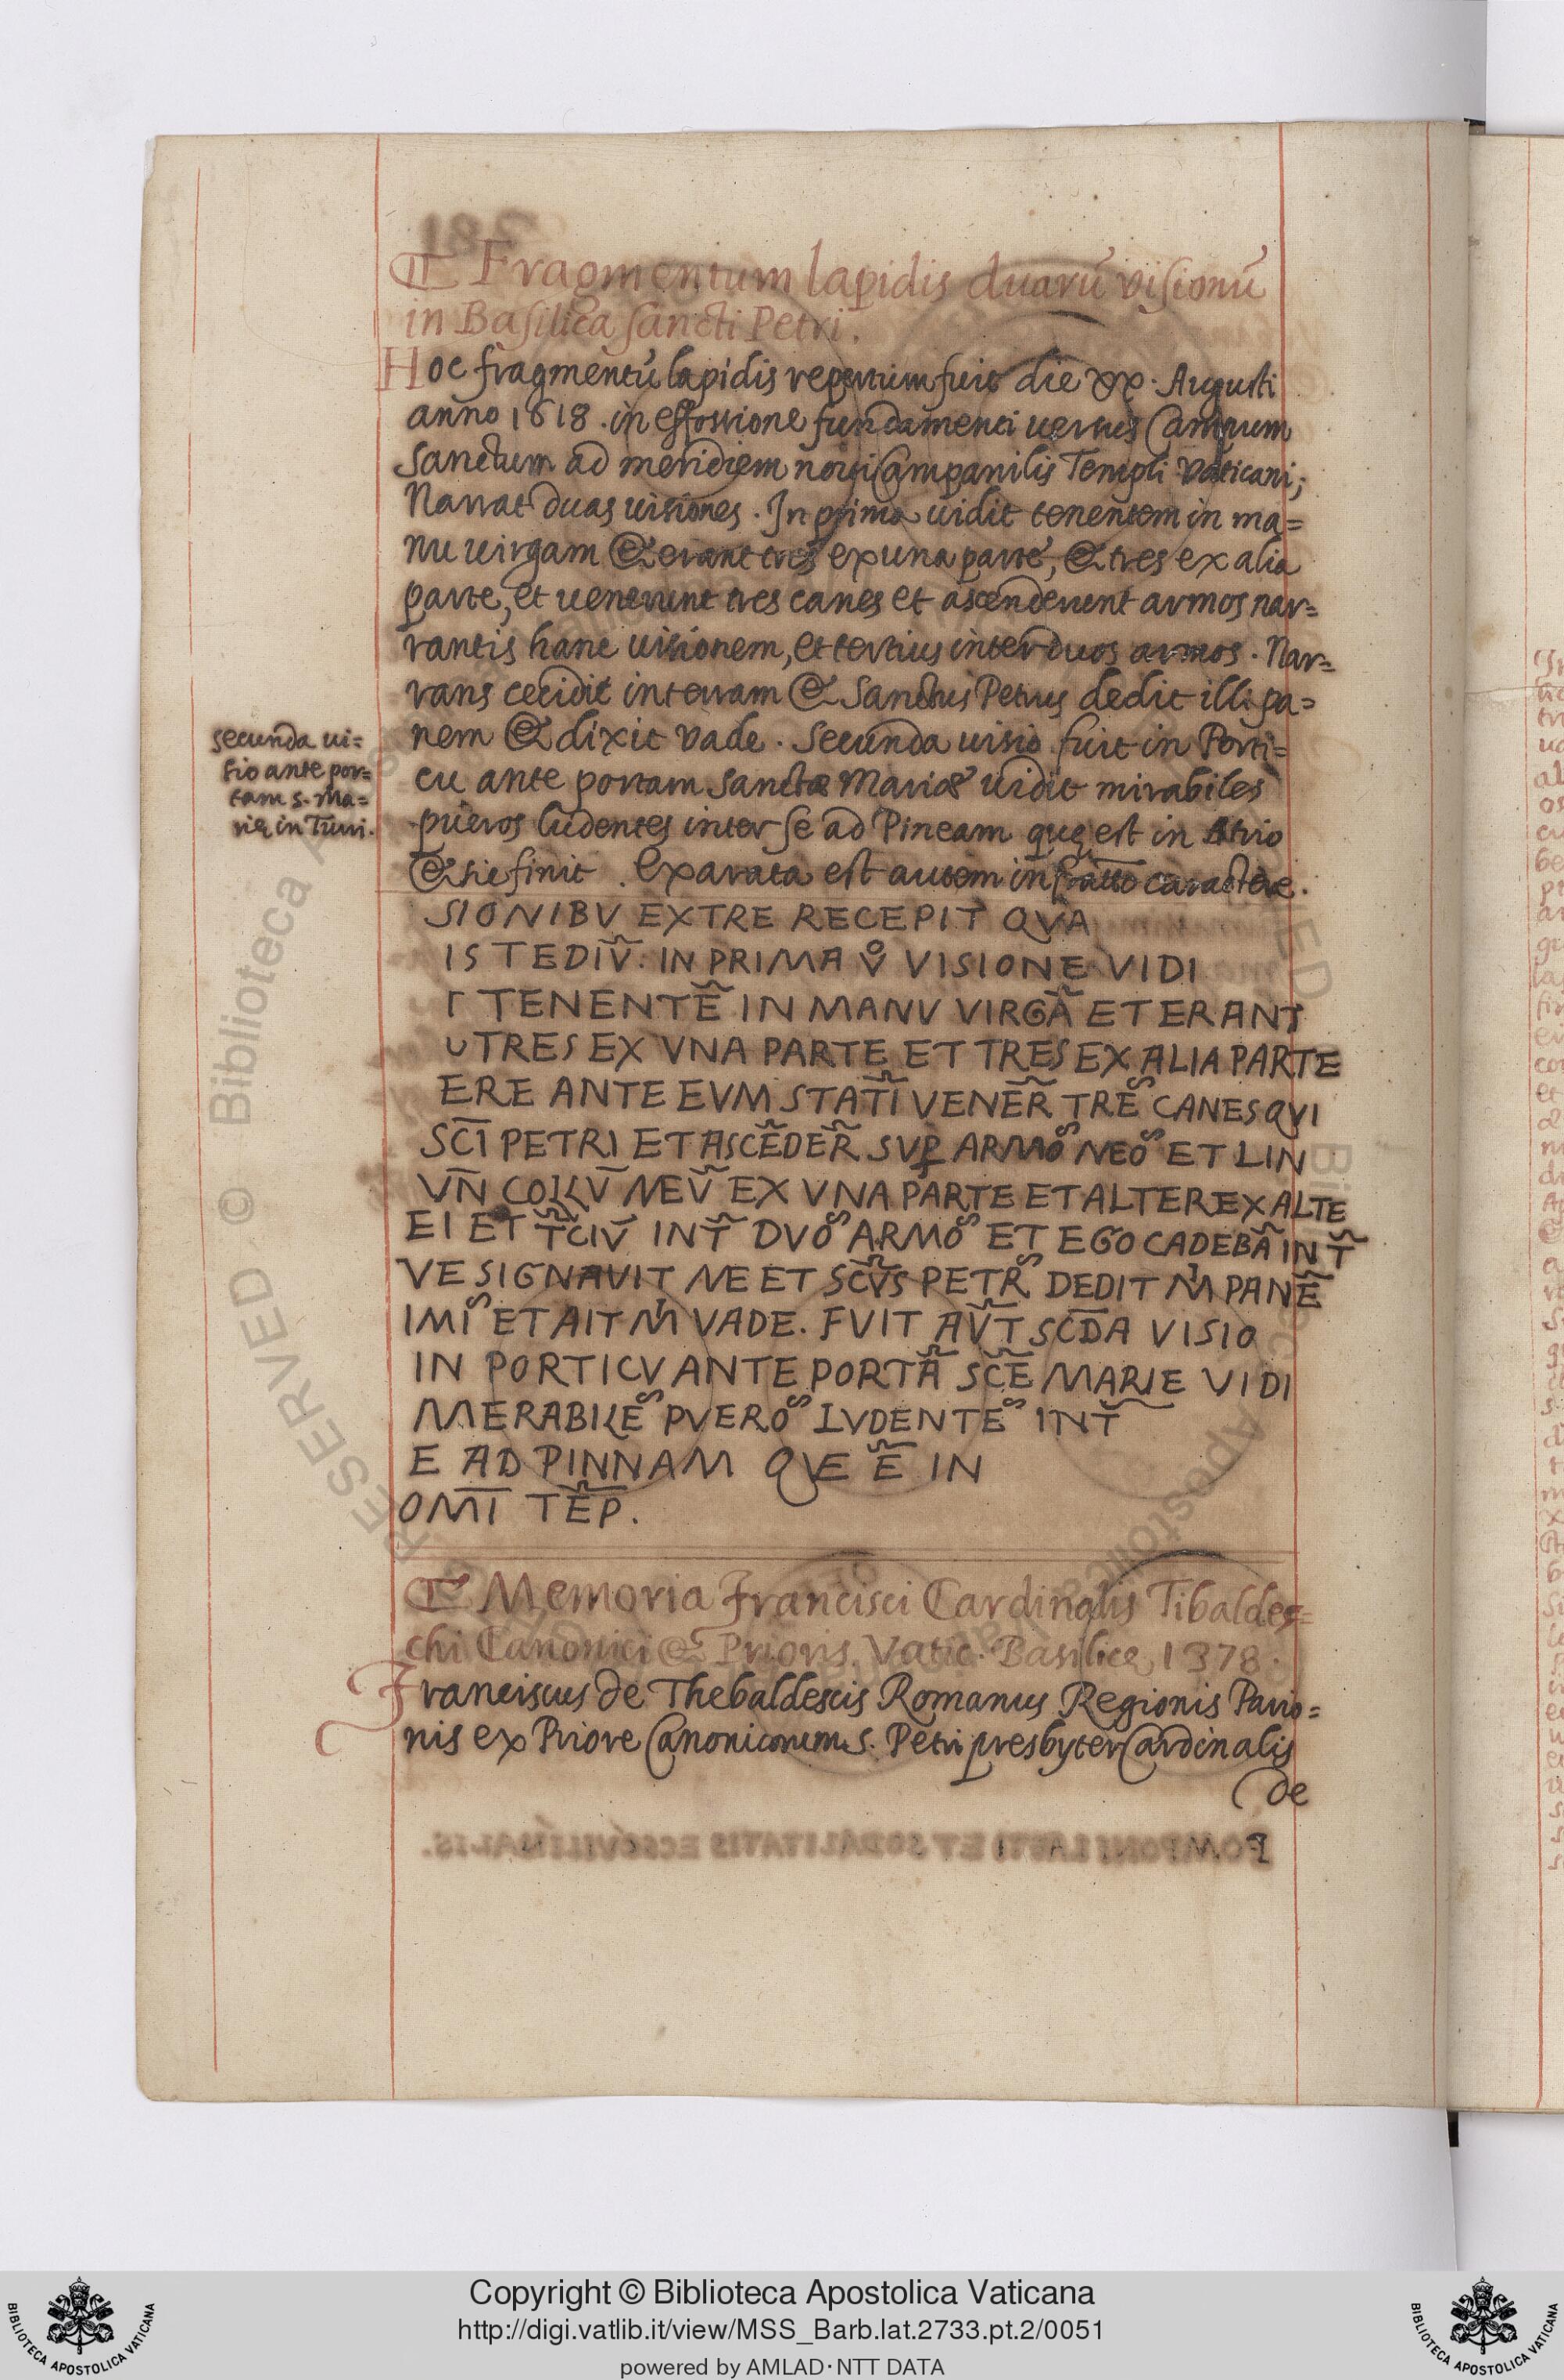 Fragmentum lapidis duarū visionū
in Basilica sancti Petri.
Hoc fragmentū lapidis repertum fuit die xx. Augusti
anno 1618. in effossione fundamenti uersus Campum
Sanctum ad meridiem noui Campanilis Templi Vaticani;
Narrat duas uisiones. In prima uidit tenentem in ma=
nu uirgam & erant tres ex una parte, & tres ex alia
parte, et uenerunt tres canes et ascenderunt armos nar=
rantis hanc uisionem, et tertius inter duos armos. Nar=
rans cecidit in terram & Sanctus Petrus dedit illi pa=
nem & dixit vade. Secunda uisio fuit in Porti=
cu ante portam Sanctæ Mariæ uidit mirabiles
pueros ludentes inter se ad Pineam quę est in Atrio
& sic finit. Exarata est autem infratto caractere.
secunda ui=
sio ante por=
tam S. Ma=
rię in Turri.
SIONIBV EXTRE RECEPIT QVA
IS TEDIV̄. IN PRIMA V̊ VISIONE VIDI
Γ TENENTĒ IN MANV VIRGĀ ET ERANT
VTRES EX VNA PARTE ET TRES EX ALIA PARTE
ERE ANTE EVM STATĪ VENER̄ TREᷤ CANES QVI
SC̄I PETRI ET ASCĒDER̄ SVP̱ ARMOᷤ MEOᷤ ET LIN
VN̄ COLLV̄ MEV̄ EX VNA PARTE ET ALTER EX ALTE
EI ET T̄CIV̄ INT̄ DVOᷤ ARMOᷤ ET EGO CADEBĀ IN T̄
VE SIGNAVIT ME ET SC̄VS PETRᷤ DEDIT Mͥ PANĒ
IMIᷤ ET AIT Mͥ VADE. FVIT AV̄T SC̄DA VISIO
IN PORTICV ANTE PORTĀ SC̄E MARIE VIDI
MERABILEᷤ PVEROᷤ LVDENTEᷤ INT̄
E AD PINNAM QVE Ē IN
OM̄I TĒP.
Memoria Francisci Cardinalis Tibaldes=
chi Canonici & Prioris. Vatic. Basilicę 1378.
Franciscus de Thebaldescis Romanus Regionis Pario=
nis ex Priore Canonicorum S. Petri presbyter Cardinalis
de
Copyright © Biblioteca Apostolica Vaticana
http://digi.vatlib.it/view/MSS_Barb.lat.2733.pt.2/0051
powered by AMLAD·NTT DATA
BIBLIOTECA APOSTOLICA VATICANA
BIBLIOTECA APOSTOLICA VATICANA